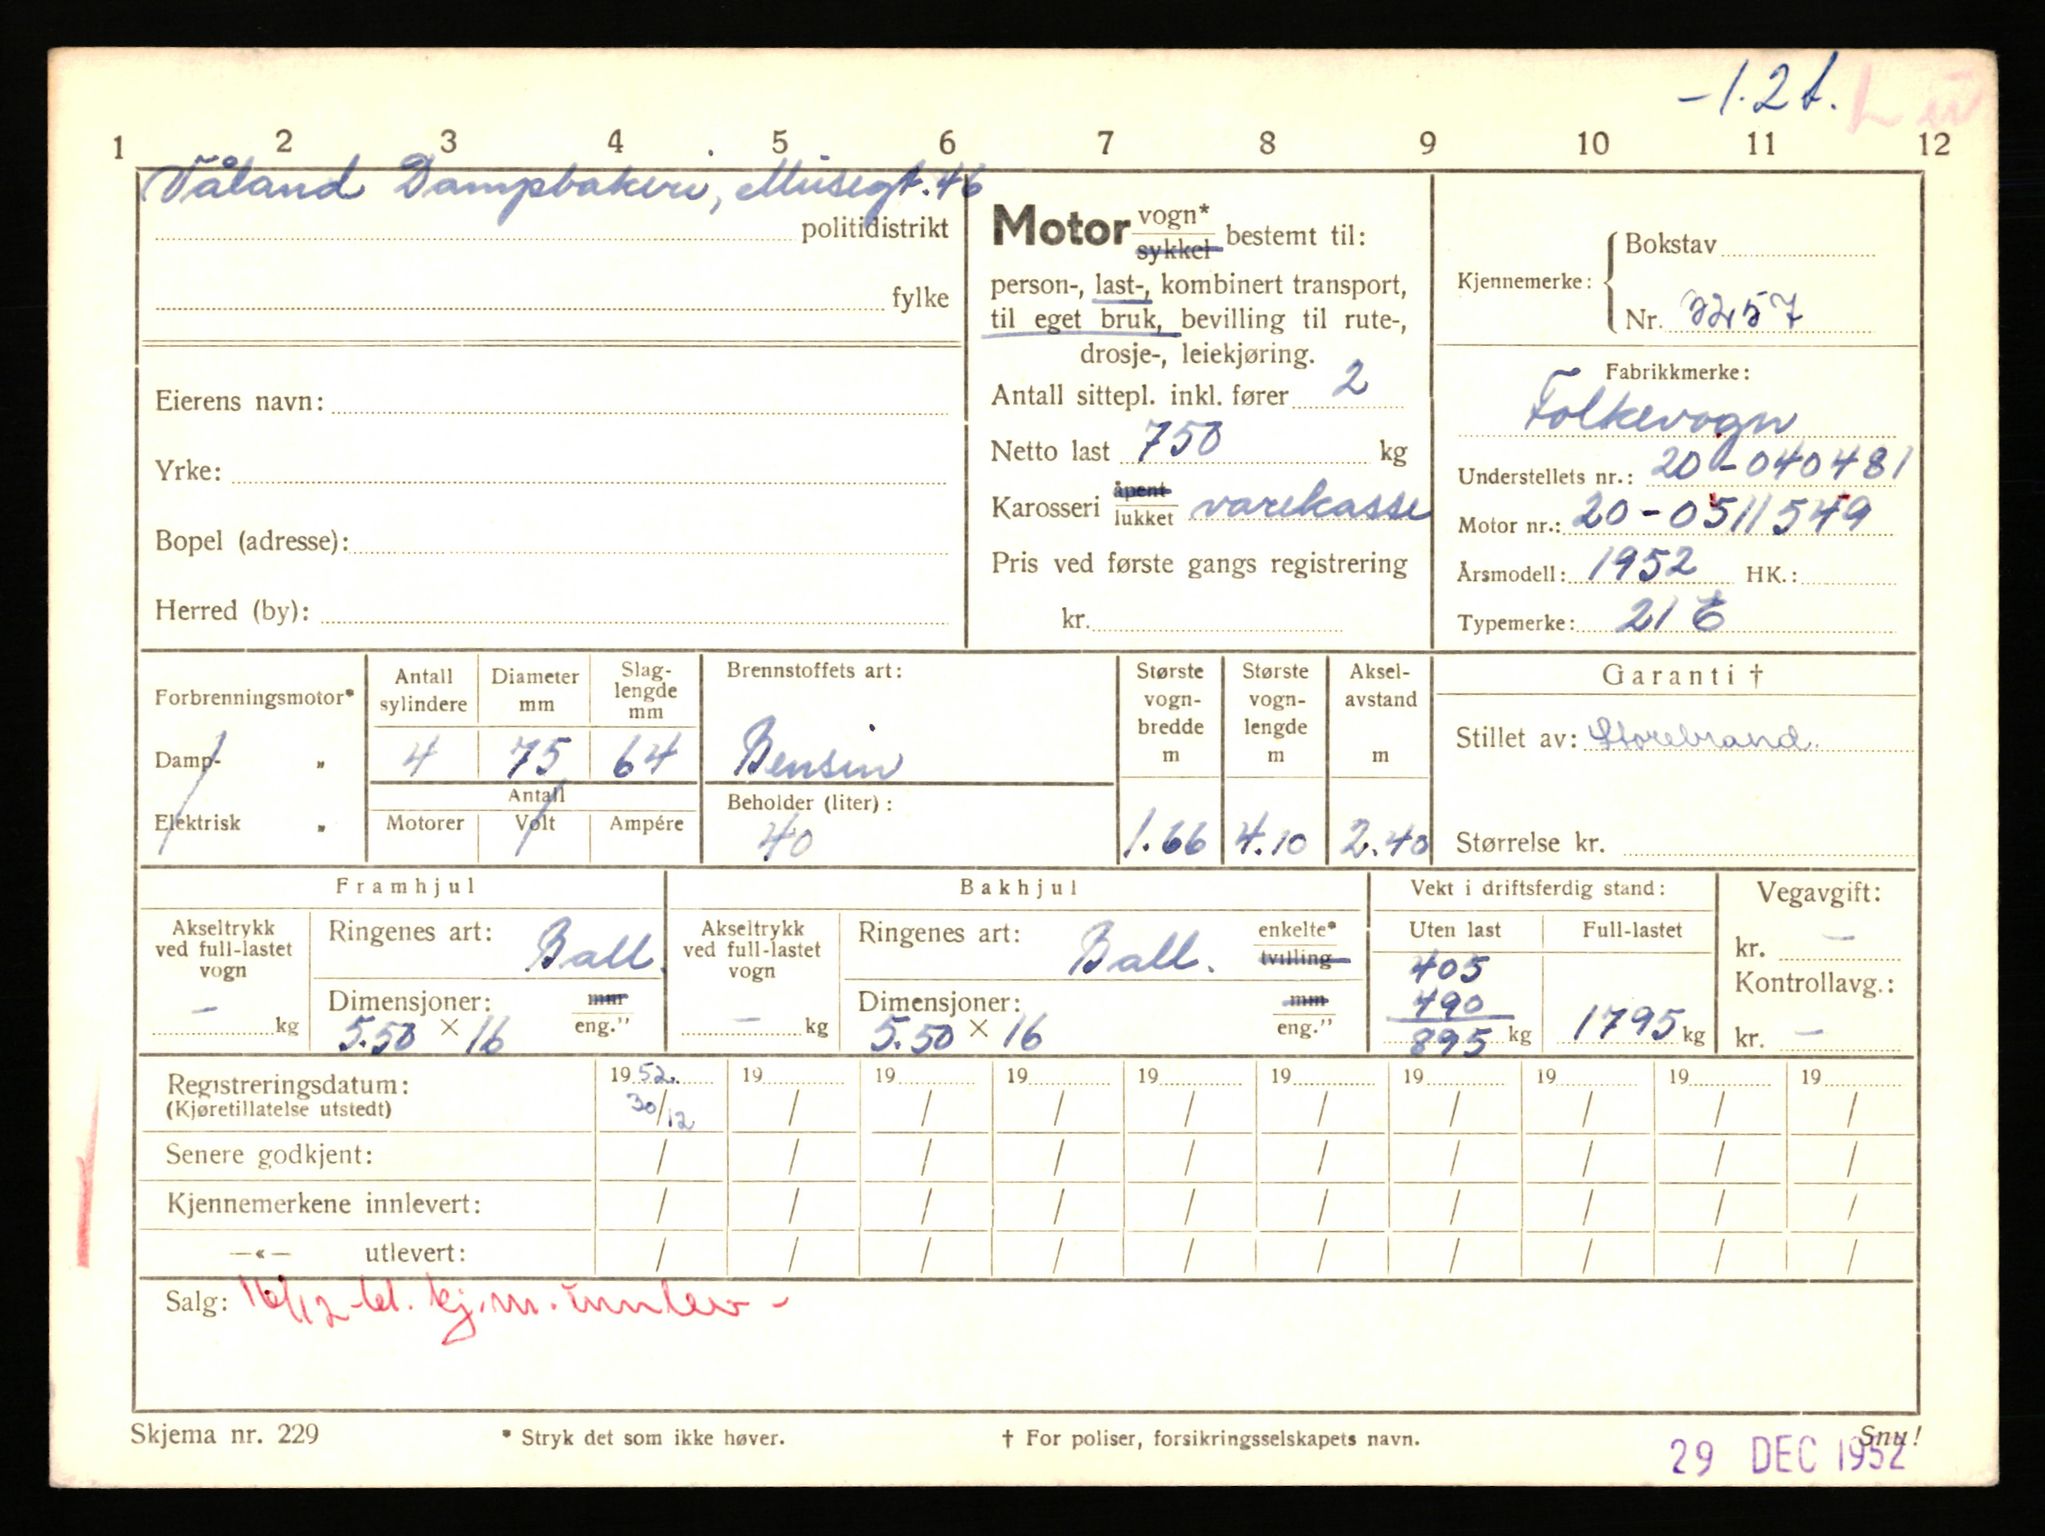 -1.2t.
1 2 3 4 5 6 7 8 9 10 11 12
Våland Dampbakeri, Musegt. 46
politidistrikt
fylke
Eierens navn:
Yrke:
Bopel (adresse):
Herred (by):
Motor vogn* sykkel bestemt til:
person-, last-, kombinert transport,
til eget bruk, bevilling til rute-,
drosje-, leiekjøring.
Antall sittepl. inkl. fører 2
Netto last 750 kg
Karosseri åpent lukket varekasse
Pris ved første gangs registrering
kr.
Kjennemerke: Bokstav
Nr. 3257
Fabrikkmerke:
Folkevogn
Understellets nr.: 20-040481
Motor nr.: 20-0511549
Årsmodell: 1952 HK.:
Typemerke: 21 E
Forbrenningsmotor*
Damp- „
Elektrisk „
Antall sylindere
4
Diameter mm
75
Slaglengde mm
64
Antall
Motorer Volt Ampére
Brennstoffets art:
Bensin
Beholder (liter):
40
Største vognbredde m
1.66
Største vognlengde m
4.10
Akselavstand m
2.40
Garanti †
Stillet av: Storebrand.
Størrelse kr.
Framhjul
Akseltrykk ved full-lastet vogn
- kg
Ringenes art: Ball.
Dimensjoner: mm
5.50 × 16 eng."
Bakhjul
Akseltrykk ved full-lastet vogn
- kg
Ringenes art: Ball. enkelte* tvilling
Dimensjoner: mm
5.50 × 16 eng."
Vekt i driftsferdig stand:
Uten last Full-lastet
405
490
895 kg 1795 kg
Vegavgift:
kr. -
Kontrollavg.:
kr. -
Registreringsdatum: 1952. 19 19 19 19 19 19 19 19 19
(Kjøretillatelse utstedt) 30/12 / / / / / / / / /
Senere godkjent: / / / / / / / / / /
Kjennemerkene innlevert: / / / / / / / / / /
—«— utlevert: / / / / / / / / / /
Salg: 16/12-61. kj.m. innlev -
Skjema nr. 229 * Stryk det som ikke høver. † For poliser, forsikringsselskapets navn. Snu!
29 DEC 1952